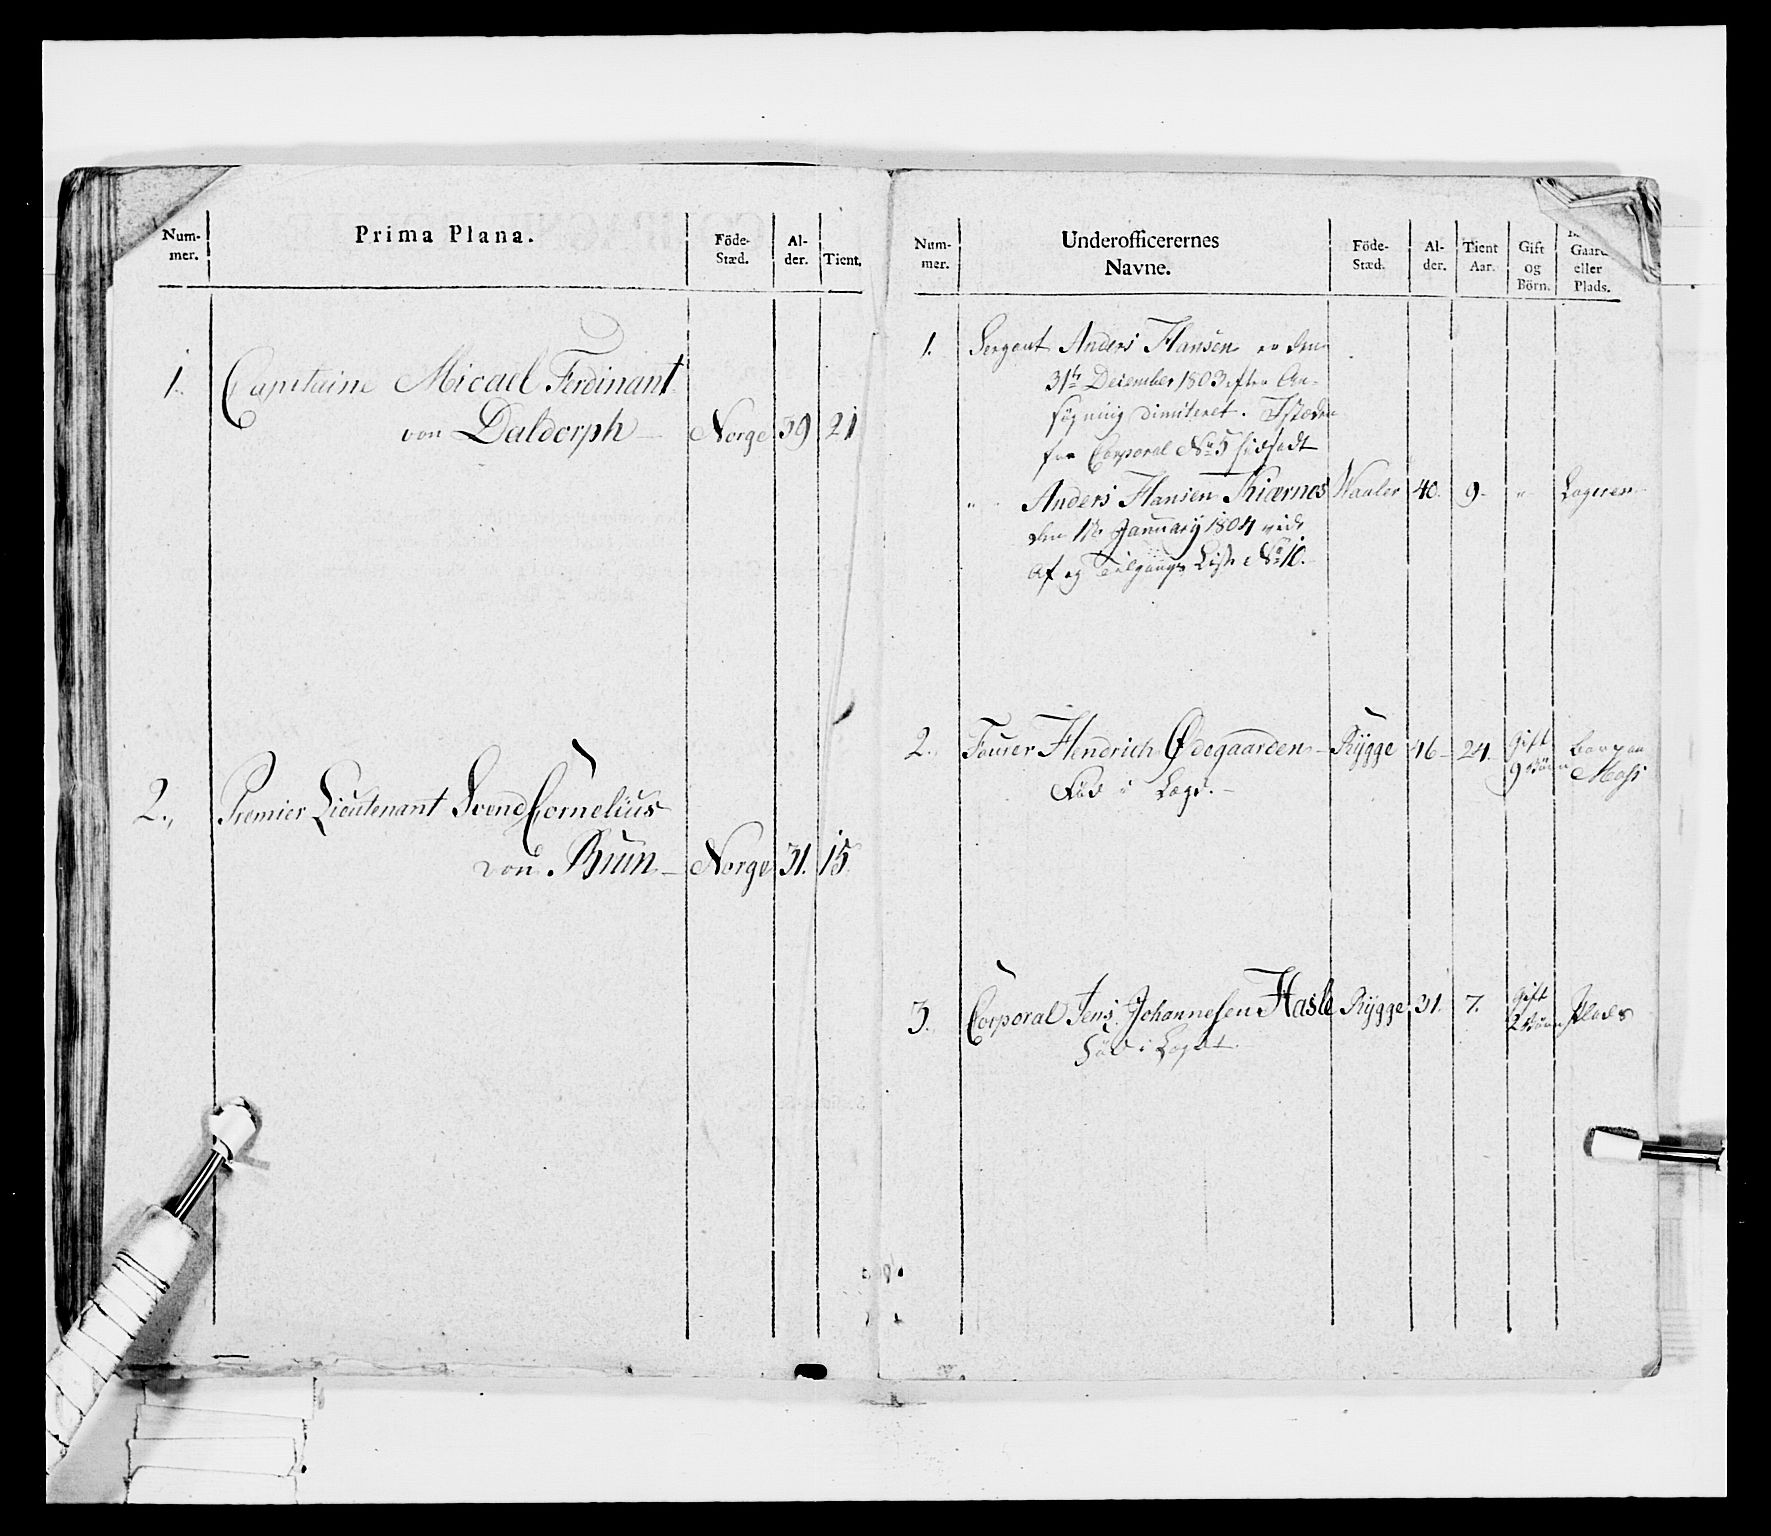 Num-
mer.
Prima Plana.
Föde-
Stæd.
Al-
der.
Tient.
1. Capitaine Micael Ferdinant
von Daldorph — Norge 39 21
2. Premier Lieutenant Svend Cornelius
von Bruun — Norge 31. 15
Num-
mer.
Underofficerernes
Navne.
Föde-
Stæd.
Al-
der.
Tient
Aar.
Gift
og
Börn.
Gaard
eller
Plads.
1. Sergant Anders Hansen er den
31te December 1803 efter An-
søgning dimiteret. Isteden
for Corporal No 5 hidsadt
" Anders Hansen Kiærnes Waaler 40. 9. "
den 1te January 1804 vide
Af og Tilgangs Liste No 10.
2. Fourer Hendrich Ødegaarden — Rygge 46 — 24. Gift
9 Børn
Moss
Fød i Lægd. —
3. Corporal Jens Johannesen Hasle Rygge 31. 7. Gift
2 Børn Plads
Fød i Lægdet